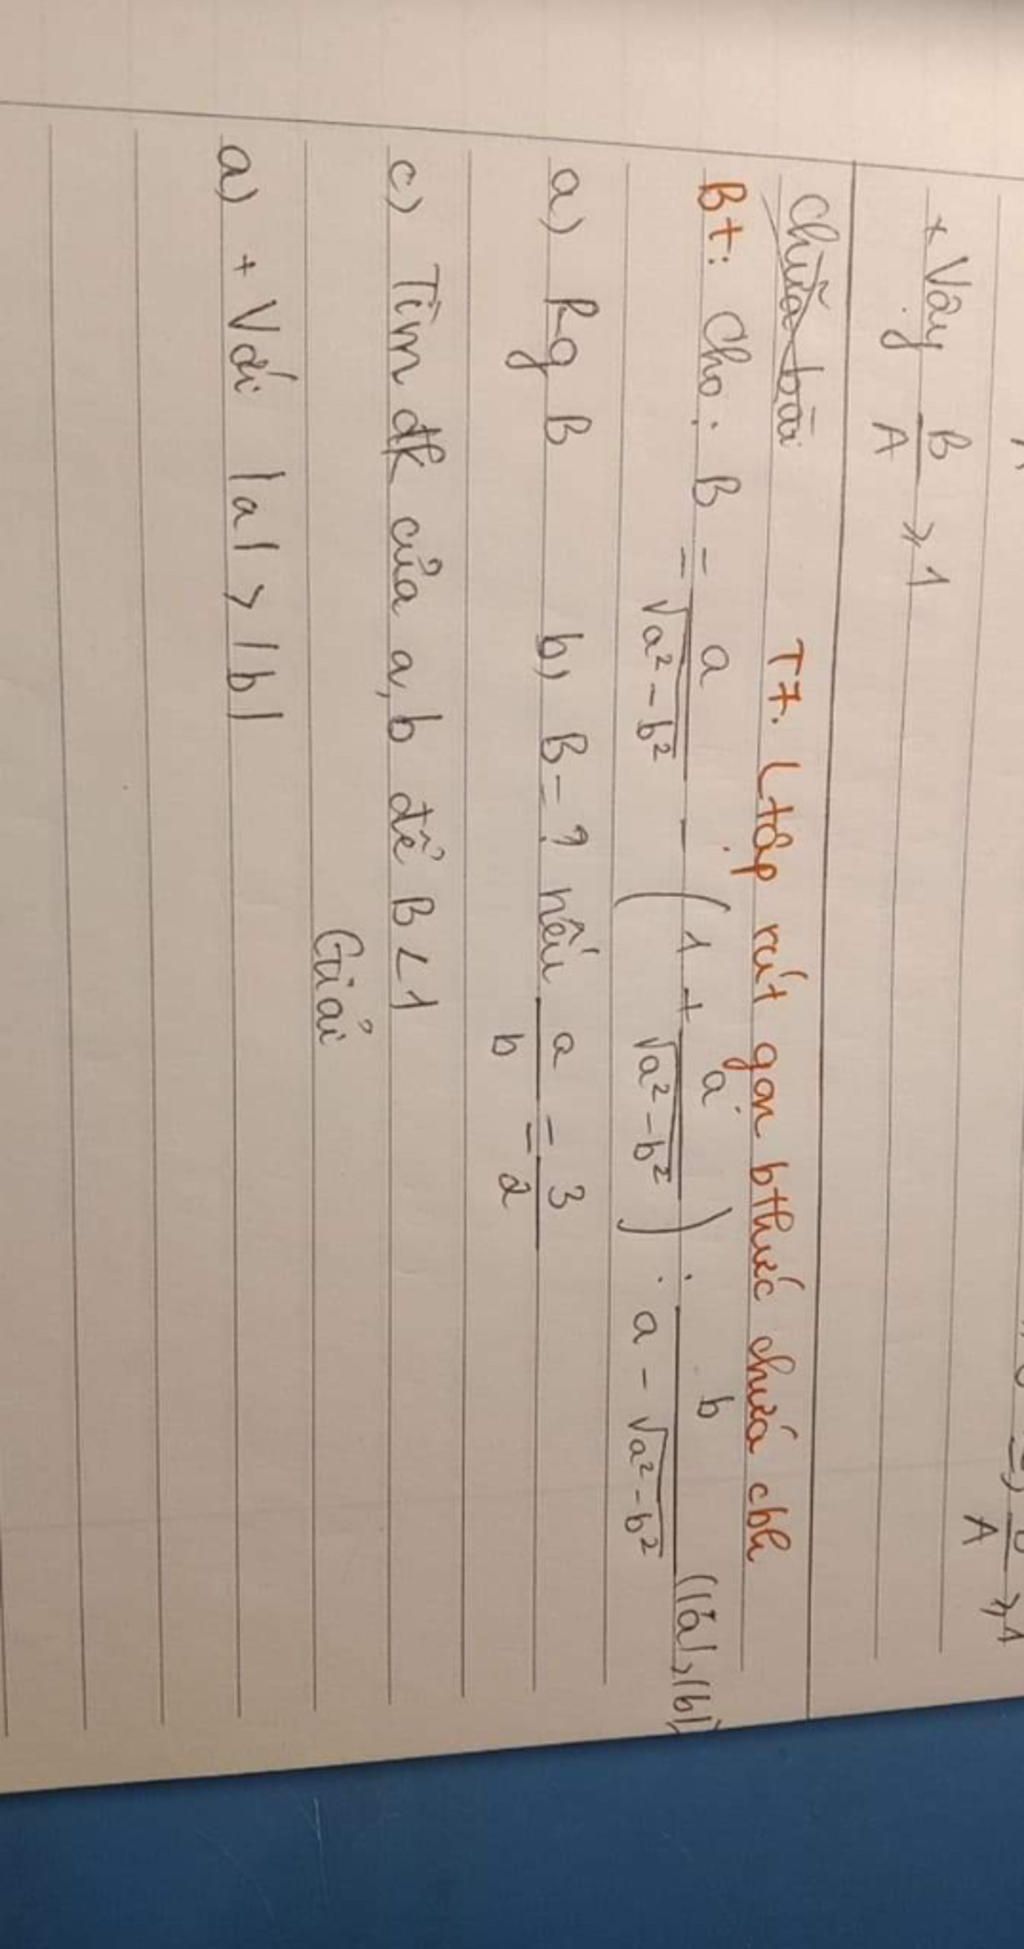 A
B/A ≥ 1
+ Vậy B/A ≥ 1
chữa bài T7. Ltập rút gọn bthức chứa cbh
Bt: Cho: B = a/√a²-b² - (1 + a/√a²-b²) : b/a - √a²-b² (|a|>|b|)
a) Rg B b) B = ? nếu a/b = 3/2
c) Tìm đk của a, b để B < 1
Giải
a) + Với |a| > |b|